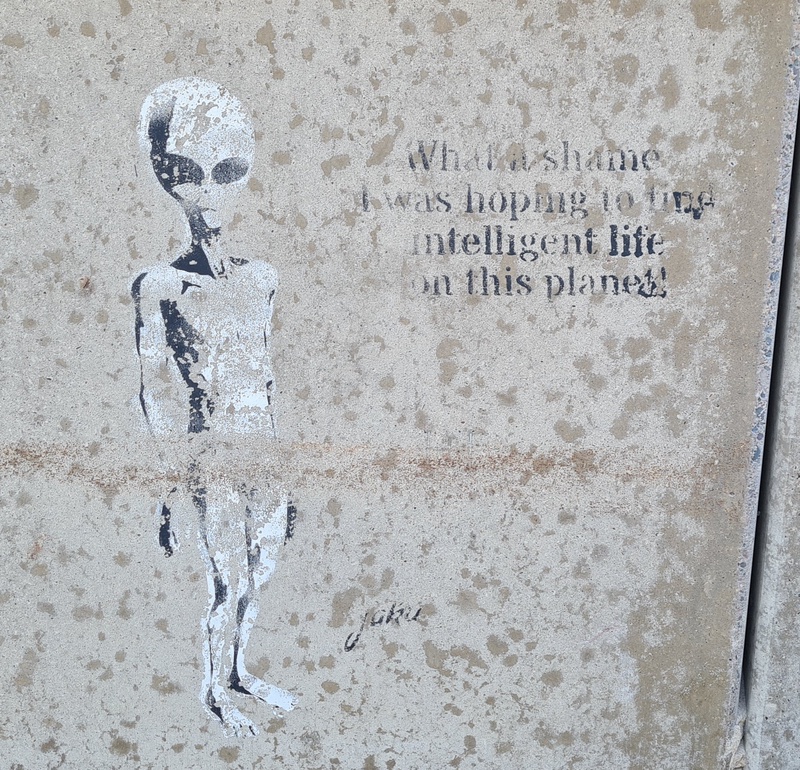 What a shame
I was hoping to find
intelligent life
on this planet!
jaku